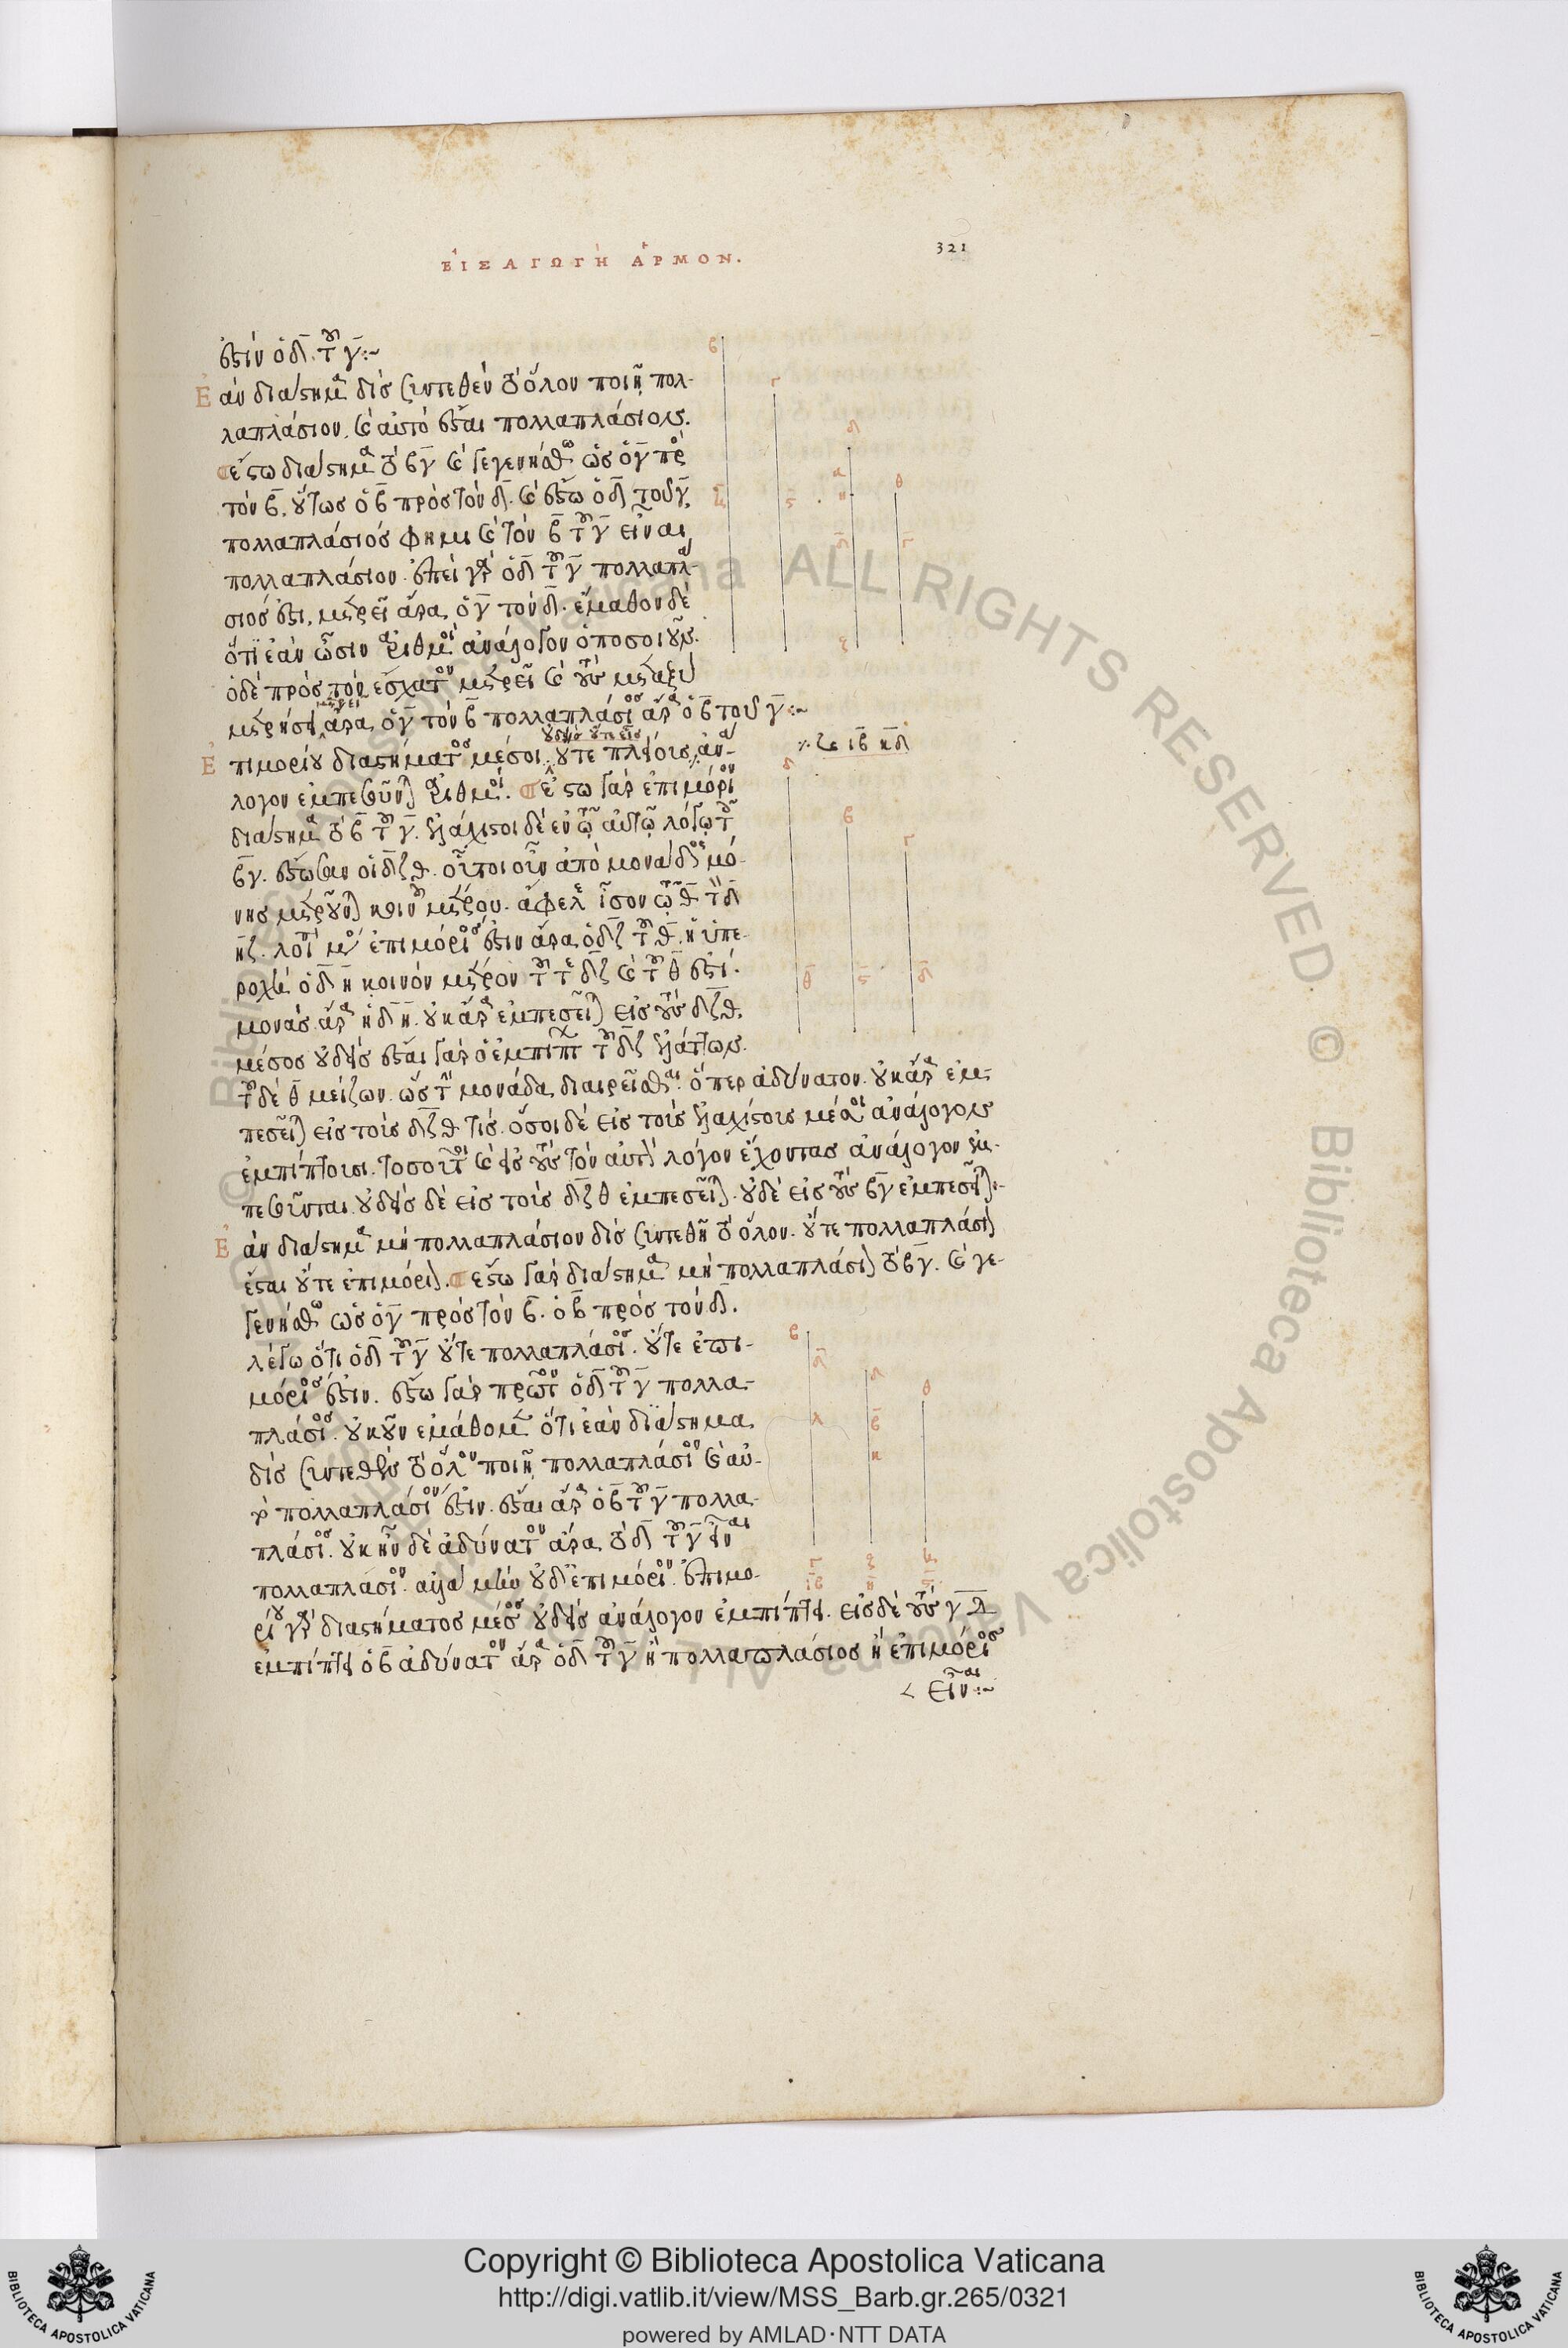 ΕΙΣΑΓΩΓΗ ΑΡΜΟΝ.
321
ἐστὶν ὁ δ̄ τοῦ γ̄:~
Ἐὰν διάστημα δὶς συντεθὲν τὸ ὅλον ποιῇ πολ-
λαπλάσιον. καὶ αὐτὸ ἔσται πολλαπλάσιον.
ἔστω διάστημα τὸ βγ καὶ γεγενήσθω ὡς ὁ γ̄ πρὸς
τὸν β̄. οὕτως ὁ β̄ πρὸς τὸν δ̄. καὶ ἔστω ὁ δ̄ τοῦ γ̄
πολλαπλάσιός φημι καὶ τὸν β̄ τοῦ γ̄ εἶναι
πολλαπλάσιον. ἐπεὶ γὰρ ὁ δ̄ τοῦ γ̄ πολλαπλά-
σιός ἐστι, μετρεῖ ἄρα ὁ γ̄ τὸν δ̄. ἔμαθον δὲ
ὅτι ἐὰν ὦσιν ἀριθμοὶ ἀνάλογον ὁποσοιοῦν.
ὁ δὲ πρὸς τὸν ἔσχατον μετρεῖ καὶ τοὺς μεταξὺ
μετρήσει, ἄρα ὁ γ̄ τὸν β̄ πολλαπλάσιος ἄρα ὁ β̄ τοῦ γ̄:~
μετρεῖ
οὐδεὶς οὔτε εἷς
Ἐπιμορίου διαστήματος μέσοι. οὔτε πλείους, ἀνὰ
λογον ἐμπεσοῦνται ἀριθμοί. ἔστω γὰρ ἐπιμόριον
⁒ ζϛ ιβ̄ κ̄δ̄
διάστημα τὸ β̄ τοῦ γ̄. ἐλάχιστοι δὲ ἐν τῷ αὐτῷ λόγῳ τοῦ
βγ. ἔστωσαν οἱ δζ θ. οὗτοι οὖν ἀπὸ μονάδος μό-
νης μετροῦνται κοινοῦ μέτρου. ἄφελε ἴσον τῷ θ τὸν δ
ηζ. λοιποῦ μὲν ἐπιμόριος ἐστιν ἄρα ὁ δζ τοῦ θ. ἡ ὑπε-
ροχὴ ὁ δ̄ η̄ κοινὸν μέτρον τοῦ τε δζ καὶ τοῦ θ̄ ἐστί.
μονὰς ἄρα ἡ δ̄ η̄. οὐκ ἄρα ἐμπεσεῖται εἰς τοὺς δζ θ.
μέσος οὐδεὶς ἔσται γὰρ ὁ ἐμπίπτων τοῦ δζ ἐλάττων.
τοῦ δὲ θ̄ μείζων. ὥστε τὴν μονάδα διαιρεῖσθαι. ὅπερ ἀδύνατον. οὐκ ἄρα ἐμ-
πεσεῖται εἰς τοὺς δζ θ τις. ὅσοι δὲ εἰς τοὺς ἐλαχίστους μέσοι ἀνάλογον
ἐμπίπτουσι. τοσοῦτοι καὶ εἰς τοὺς τὸν αὐτὸν λόγον ἔχοντας ἀνάλογον ἐμ-
πεσοῦνται. οὐδεὶς δὲ εἰς τοὺς δζ θ ἐμπεσεῖται. οὐδὲ εἰς τοὺς βγ ἐμπεσεῖται:-
Ἐὰν διάστημα μὴ πολλαπλάσιον δὶς συντεθῇ τὸ ὅλον. οὔτε πολλαπλάσιον
ἔσται οὔτε ἐπιμόριον. ἔστω γὰρ διάστημα μὴ πολλαπλάσιον τὸ βγ. καὶ γε-
γενήσθω ὡς ὁ γ̄ πρὸς τὸν β̄. ὁ β̄ πρὸς τὸν δ̄.
λέγω ὅτι ὁ δ̄ τοῦ γ̄ οὔτε πολλαπλάσιος. οὔτε ἐπι-
μόριος ἐστιν. ἔστω γὰρ πρῶτον ὁ δ̄ τοῦ γ̄ πολλα-
πλάσιος. οὐκοῦν ἐμάθομεν ὅτι ἐὰν διάστημα
δὶς συντεθὲν τὸ ὅλον ποιῇ πολλαπλάσιον καὶ αὐ-
τὸ πολλαπλάσιον ἐστιν. ἔσται ἄρα ὁ β̄ τοῦ γ̄ πολλα-
πλάσιος. οὐκ ἦν δὲ ἀδύνατον ἄρα τὸ δ̄ τοῦ γ̄ εἶναι
πολλαπλάσιον. ἀλλὰ μὴν οὐδ' ἐπιμόριον. ἐπιμο-
ρίου γὰρ διαστήματος μέσος οὐδεὶς ἀνάλογον ἐμπίπτει. εἰς δὲ τοὺς γ̄ δ̄
ἐμπίπτει ὁ β̄ ἀδύνατον ἄρα ὁ δ̄ τοῦ γ̄ ἢ πολλαπλάσιος ἢ ἐπιμόριος
< εἶναι:~
© Biblioteca Apostolica Vaticana ALL RIGHTS RESERVED
Copyright © Biblioteca Apostolica Vaticana
http://digi.vatlib.it/view/MSS_Barb.gr.265/0321
powered by AMLAD·NTT DATA
BIBLIOTECA APOSTOLICA VATICANA
BIBLIOTECA APOSTOLICA VATICANA